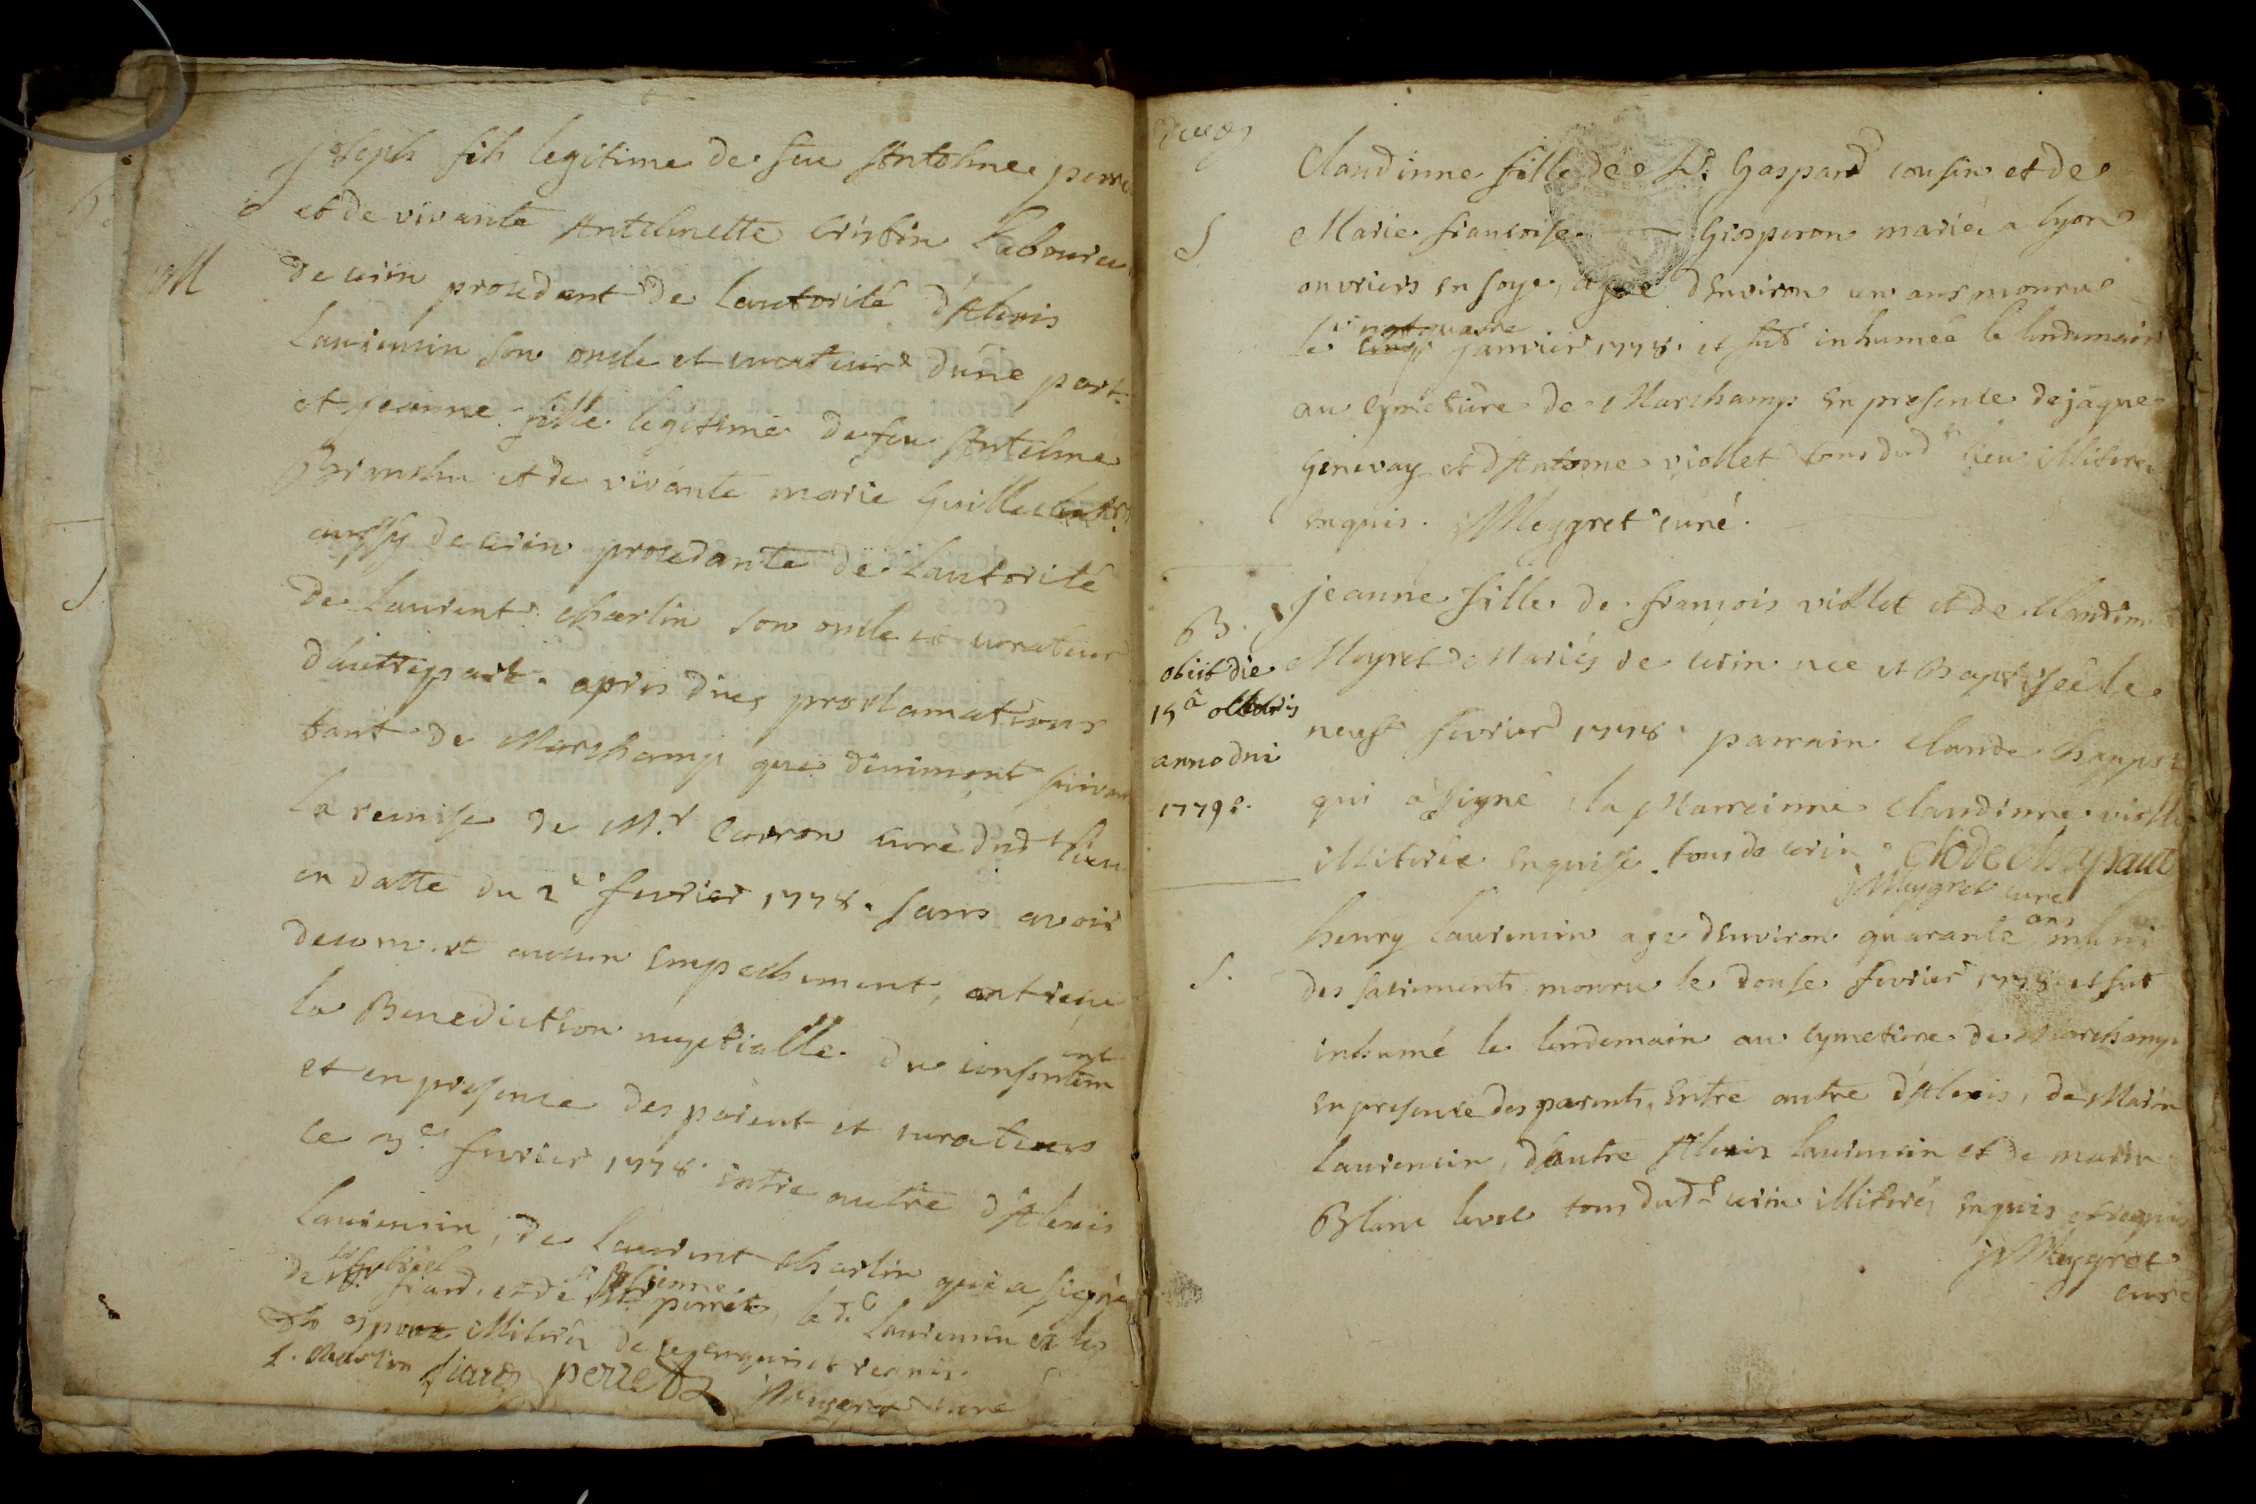 Joseph fils legitime de feu Antelme perre
et de vivante Antelmette Cristin Laboureu
M
de crin procedant de l'autorité d'Alexis
Laurensin son oncle et curateur d'une part
et jeanne fille legitime de feu Antelme
et de vivante marie
aussy de crin procedante de l'autorité
de Laurent charlin son oncle et curateur
d'autre part. apres dües proclamations
tant de Marchamp que suivant
la remise de Mr Carron curé dudt lieu
en datte du 2e fevrier 1778. sans avoir
decouvert aucun empechement, ont reçu
la Benediction nuptialle du consentement
et en presence des parent et curateurs
le 3e fevrier 1778 entre autre d'Alexis
Laurensin, de Laurent charlin qui a signé
de fiard, et de Perret, le d. Laurensin et les
illitérés de ce enquis et requis.
L. charlin fiard perret Meygret curé
Claudinne fille de Sr. Gaspard cousin et de
S
Marie francoise Grosperon mariés a lyon
ouvriers en soye, agée d'environ un ans mouru
le quatre janvier 1778. et fut inhumée le lendemain
au cymetiere de Marchamp en presence de jaque
Genevay et d'Antoine viollet tous dudt lieu illiteres
enquis. Meygret curé.
B.
jeanne fille de françois viollet et de Claudine
obiit die
Meyret Mariés de crin née et Baptisée le
15a octobris
neuf fevrier 1778. parrain Claude
anno dni
1779.
qui a signé la Marreinne Claudinne viollet
illiterée enquise. tous de crin. Clode
Meygret curé
S.
henry Laurensin age d'environ quarante ans muni
des sacrements mouru le douse fevrier 1778. et fut
inhumé le lendemain au cymetiere de Marchamp
en presence des parents, entre autre d'Alexis, de Marin
Laurensin, d'autre Alexis Laurensin et de marin
Blanc tous dudt crin illiterés enquis et requis
Meygret
curé